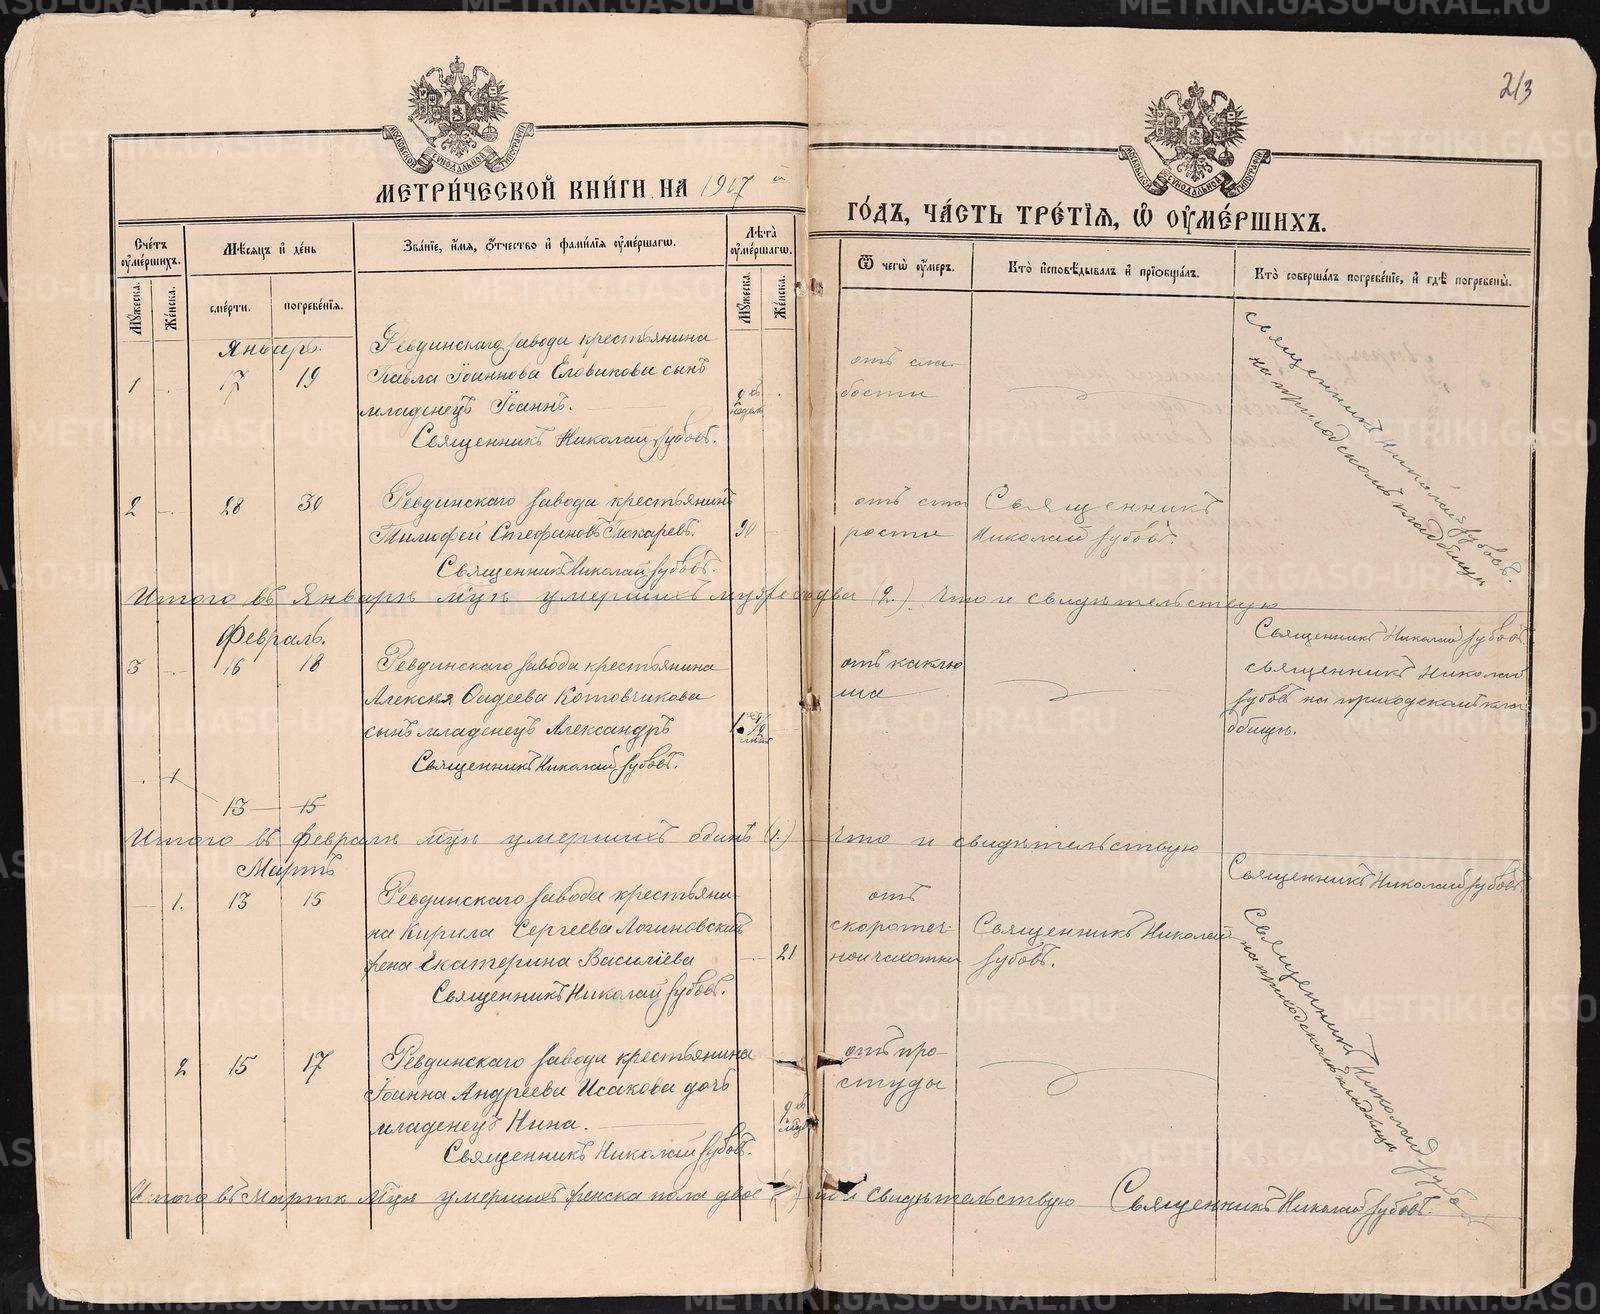 213
МЕТРИ́ЧЕСКОЙ КНИ́ГИ НА 1907 й
ГО́ДЪ, ЧА́СТЬ ТРЕ́ТІѦ, Ѡ҆ ОУ҆МЕ́РШИХЪ.
МОСКОВСКОЙ СѴНОДАЛЬНОЙ ТИПОГРАФІИ
МОСКОВСКОЙ СѴНОДАЛЬНОЙ ТИПОГРАФІИ
Сче́тъ оу҆ме́ршихъ.
Мѣ́сяцъ и҆ де́нь
Зва́ніе, и҆́мя, ѻ҆́тчество и҆ фами́лія оу҆ме́ршагѡ.
Лѣта̀ оу҆ме́ршагѡ.
Ѿ чегѡ̀ оу҆́меръ.
Кто̀ и҆сповѣ́дывалъ и҆ пріѡбща́лъ.
Кто̀ соверша́лъ погребе́ніе, и҆ гдѣ̀ погребены̀.
Мꙋ́жеска.
Же́нска.
сме́рти.
погребе́нія.
Мꙋ́жеска.
Же́нска.
Январь.
1 17 19
Ревдинскаго завода крестьянина
Павла Іоаннова Еловикова сынъ
младенецъ Іоаннъ.
Священникъ Николай Зубовъ.
недѣль
отъ сла-
бости
Священникъ Николай Зубовъ.
на приходскомъ кладбищѣ
2 28 30
Ревдинскаго завода крестьянинъ
Тимофей Стефановъ Токаревъ.
Священникъ Николай Зубовъ.
90
отъ ста
рости
Священникъ
Николай Зубовъ.
Итого въ Январѣ м-цѣ умершихъ мужеска два (2.) Что и свидѣтельствую
Священникъ Николай Зубовъ
Февраль.
3 16 18
Ревдинскаго завода крестьянина
Алексѣя Фадеева Котовчикова
сынъ младенецъ Александръ
Священникъ Николай Зубовъ.
1 1/2
лѣтъ
отъ каклю
ша
священникъ Николай
Зубовъ на приходскомъ кла
дбищѣ.
1
13 — 15
Итого въ Февралѣ м-цѣ умершихъ одинъ (1.) Что и свидѣтельствую
Священникъ Николай Зубовъ
Мартъ
1. 13 15
Ревдинскаго завода крестьяни-
на Кирила Сергеева Логиновскихъ
жена Екатерина Василіева
Священникъ Николай Зубовъ.
21
отъ
скоротеч-
ной чахотки
Священникъ Николай
Зубовъ.
Священникъ Николай Зубовъ
на приходскомъ кладбищѣ
2 15 17
Ревдинскаго завода крестьянина
Іоанна Андреева Исакова дочь
младенецъ Нина.
Священникъ Николай Зубовъ.
отъ про-
студы
Итого въ Мартѣ м-цѣ умершихъ женска пола двое (2) что и свидѣтельствую Священникъ Николай Зубовъ.
METRIKI.GASO-URAL.RU